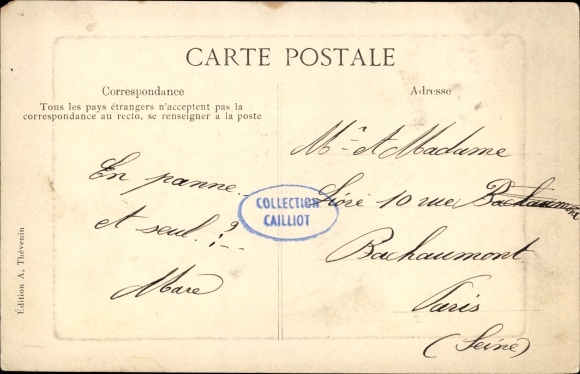 CARTE POSTALE
Correspondance
Tous les pays étrangers n'acceptent pas la
correspondance au recto, se renseigner à la poste
En panne..
et seul..?
Maré
COLLECTION
CAILLIOT
Adresse
Mr et Madame
10 rue Bachaumont
Bachaumont
Paris
(Seine)
Edition A. Thévenin